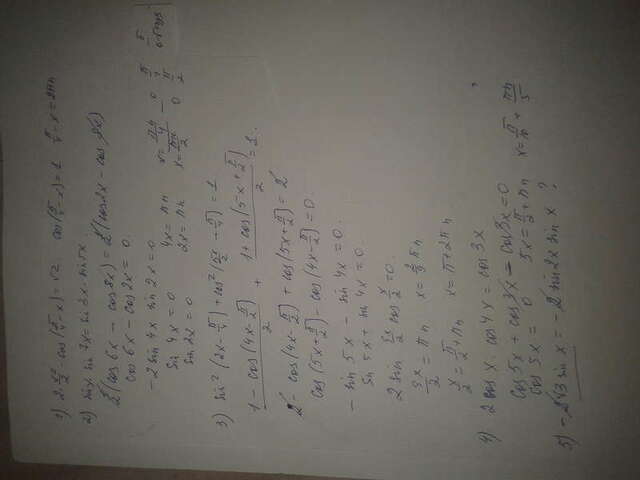 1) 2·√2/2·cos(π/4 - x) = √2   cos(π/4 - x) = 1   π/4 - x = 2πn
2) sin x · sin 7x = sin 3x · sin 5x
½(cos 6x - cos 8x) = ½(cos 2x - cos 8x)
cos 6x - cos 2x = 0
-2 sin 4x sin 2x = 0
sin 4x = 0   4x = πn   x = πn/4
sin 2x = 0   2x = πn   x = πn/2
3) sin²(2x - π/4) + cos²(5x/2 + π/4) = 1
(1 - cos(4x - π/2))/2 + (1 + cos(5x + π/2))/2 = 1
2 - cos(4x - π/2) + cos(5x + π/2) = 2
cos(5x + π/2) - cos(4x - π/2) = 0
- sin 5x - sin 4x = 0
sin 5x + sin 4x = 0
2 sin 9x/2 cos x/2 = 0
9x/2 = πn   x = 2/9 πn
x/2 = π/2 + πn   x = π + 2πn
4) 2 cos x · cos 4x = cos 3x
cos 5x + cos 3x - cos 3x = 0
cos 5x = 0   5x = π/2 + πn   x = π/10 + πn/5
5) -2√3 sin x = -2 sin 2x sin x ?